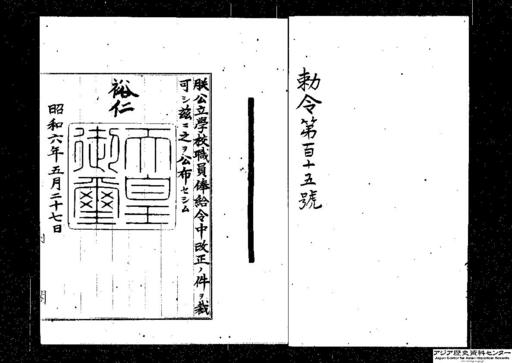 勅令第百十五號
朕公立學校職員俸給令中改正ノ件ヲ裁
可シ茲ニ之ヲ公布セシム
裕仁
天皇
御璽
昭和六年五月二十七日
アジア歴史資料センター
Japan Center for Asian Historical Records